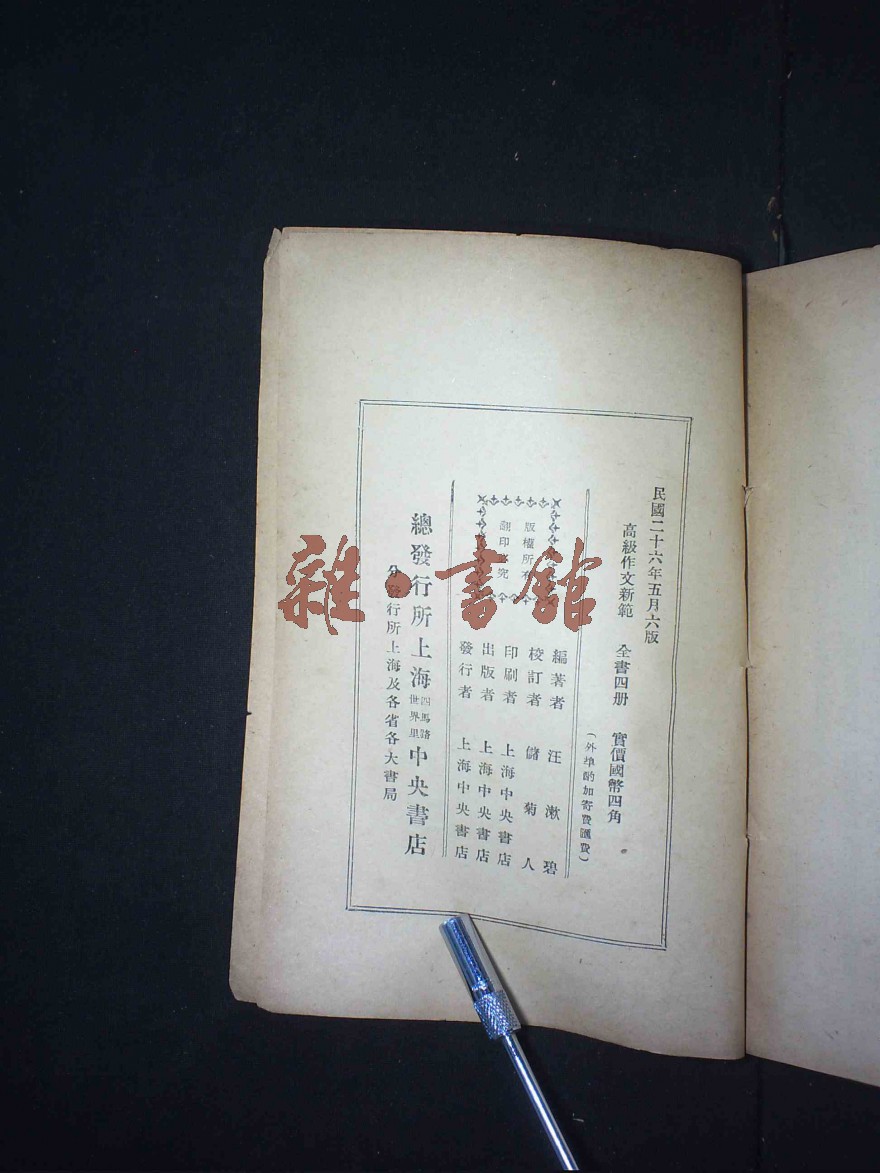 民國二十六年五月六版
高級作文新範 全書四册 實價國幣四角
(外埠酌加寄費匯費)
版權所有
翻印必究
編著者 汪漱碧
校訂者 儲菊人
印刷者 上海中央書店
出版者 上海中央書店
發行者 上海中央書店
總發行所上海四馬路世界里中央書店
分發行所上海及各省各大書局
雜·書館